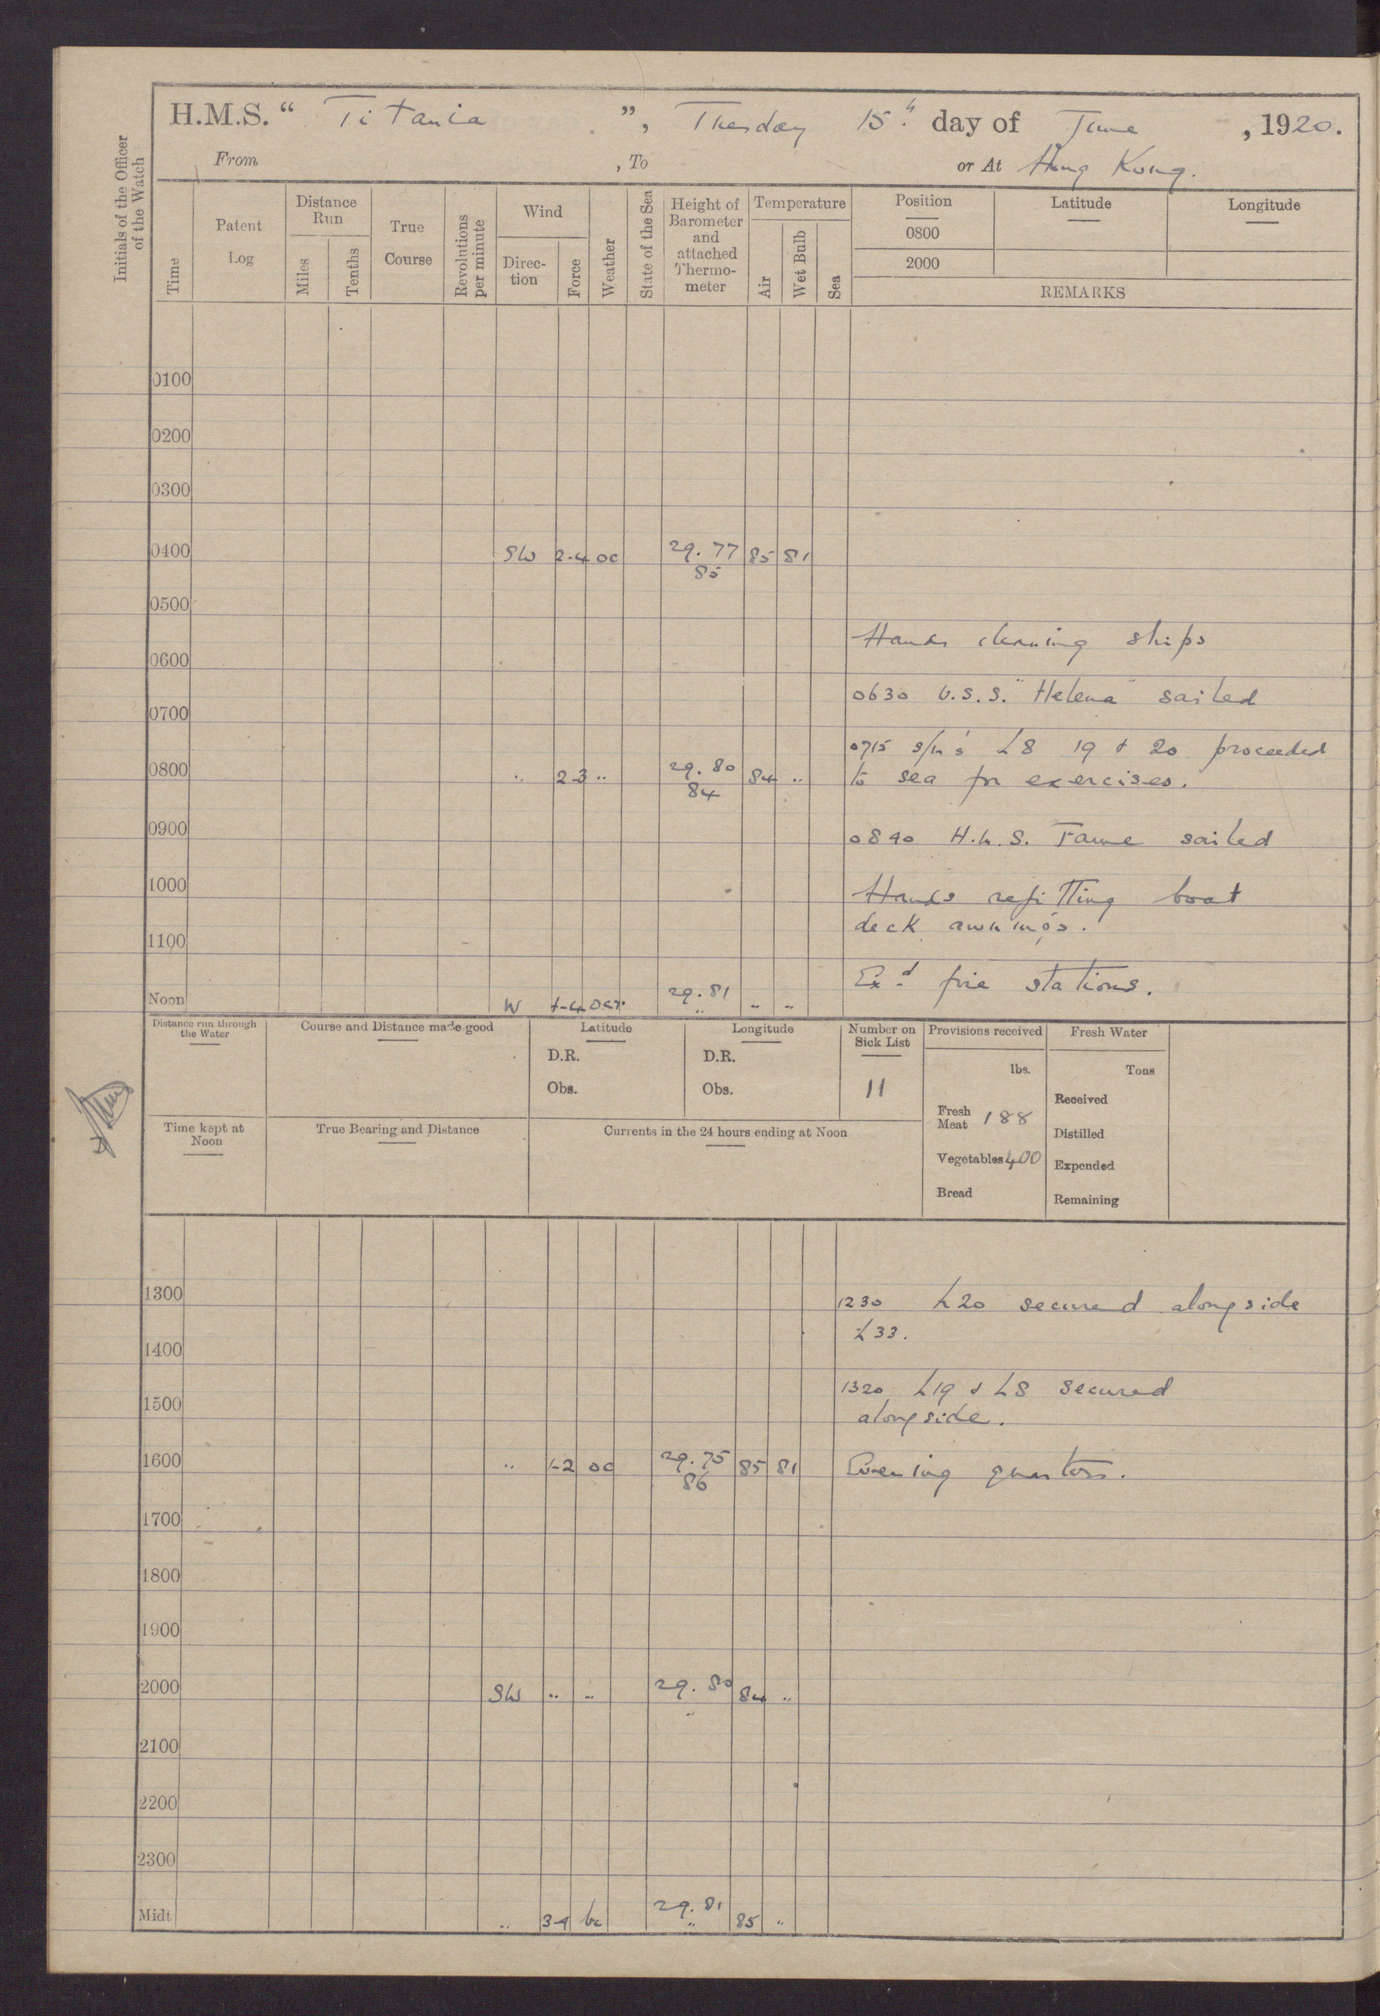 H.M.S. “ Titania ”, Tuesday 15th day of June , 1920.
From , To or At Hong Kong.
Initials of the Officer of the Watch
Time
Patent Log
Distance Run
Miles
Tenths
True Course
Revolutions per minute
Wind
Direc-tion
Force
Weather
State of the Sea
Height of Barometer and attached Thermo-meter
Temperature
Air
Wet Bulb
Sea
Position
0800
2000
Latitude
Longitude
REMARKS
0100
0200
0300
0400 SW 2-4 oc 29.77 85 81
85
0500
Hands cleaning ships
0600
0630 U.S.S. "Helena" sailed
0700
0715 S/m's L8 19 & 20 proceeded
0800 .. 2-3 .. 29.80 84 .. to sea for exercises.
84
0900 0840 H.M.S. Fame sailed
1000 Hands refitting boat
deck awnings.
1100
Exd fire stations.
Noon W 29.81 .. ..
..
Distance run through the Water
Course and Distance made good
Latitude
D.R.
Obs.
Longitude
D.R.
Obs.
Number on Sick List
11
Provisions received
lbs.
Fresh Meat 188
Vegetables 400
Bread
Fresh Water
Tons
Received
Distilled
Expended
Remaining
Time kept at Noon
True Bearing and Distance
Currents in the 24 hours ending at Noon
1300 1230 L20 secured alongside
L33.
1400
1320 L19 & L8 secured
1500 alongside.
1600 .. 1-2 oc 29.75 85 81 Evening quarters.
86
1700
1800
1900
2000 SW .. .. 29.80 84 ..
..
2100
2200
2300
Midt .. 3-4 bc 29.81 85 ..
..